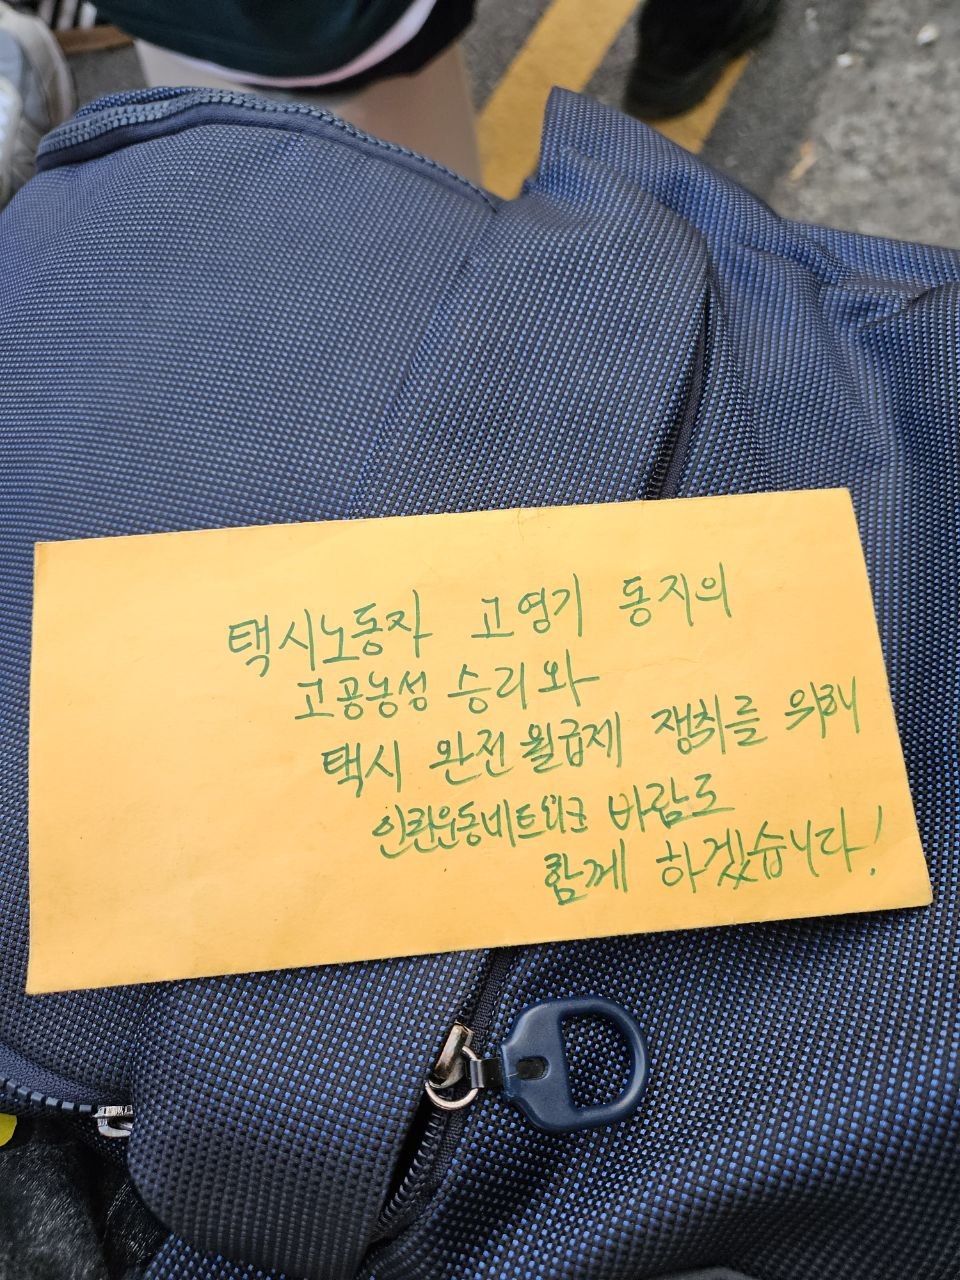 택시노동자 고영기 동지의
고공농성 승리와
택시 완전월급제 쟁취를 위해
인권운동네트워크 바람도
함께 하겠습니다!